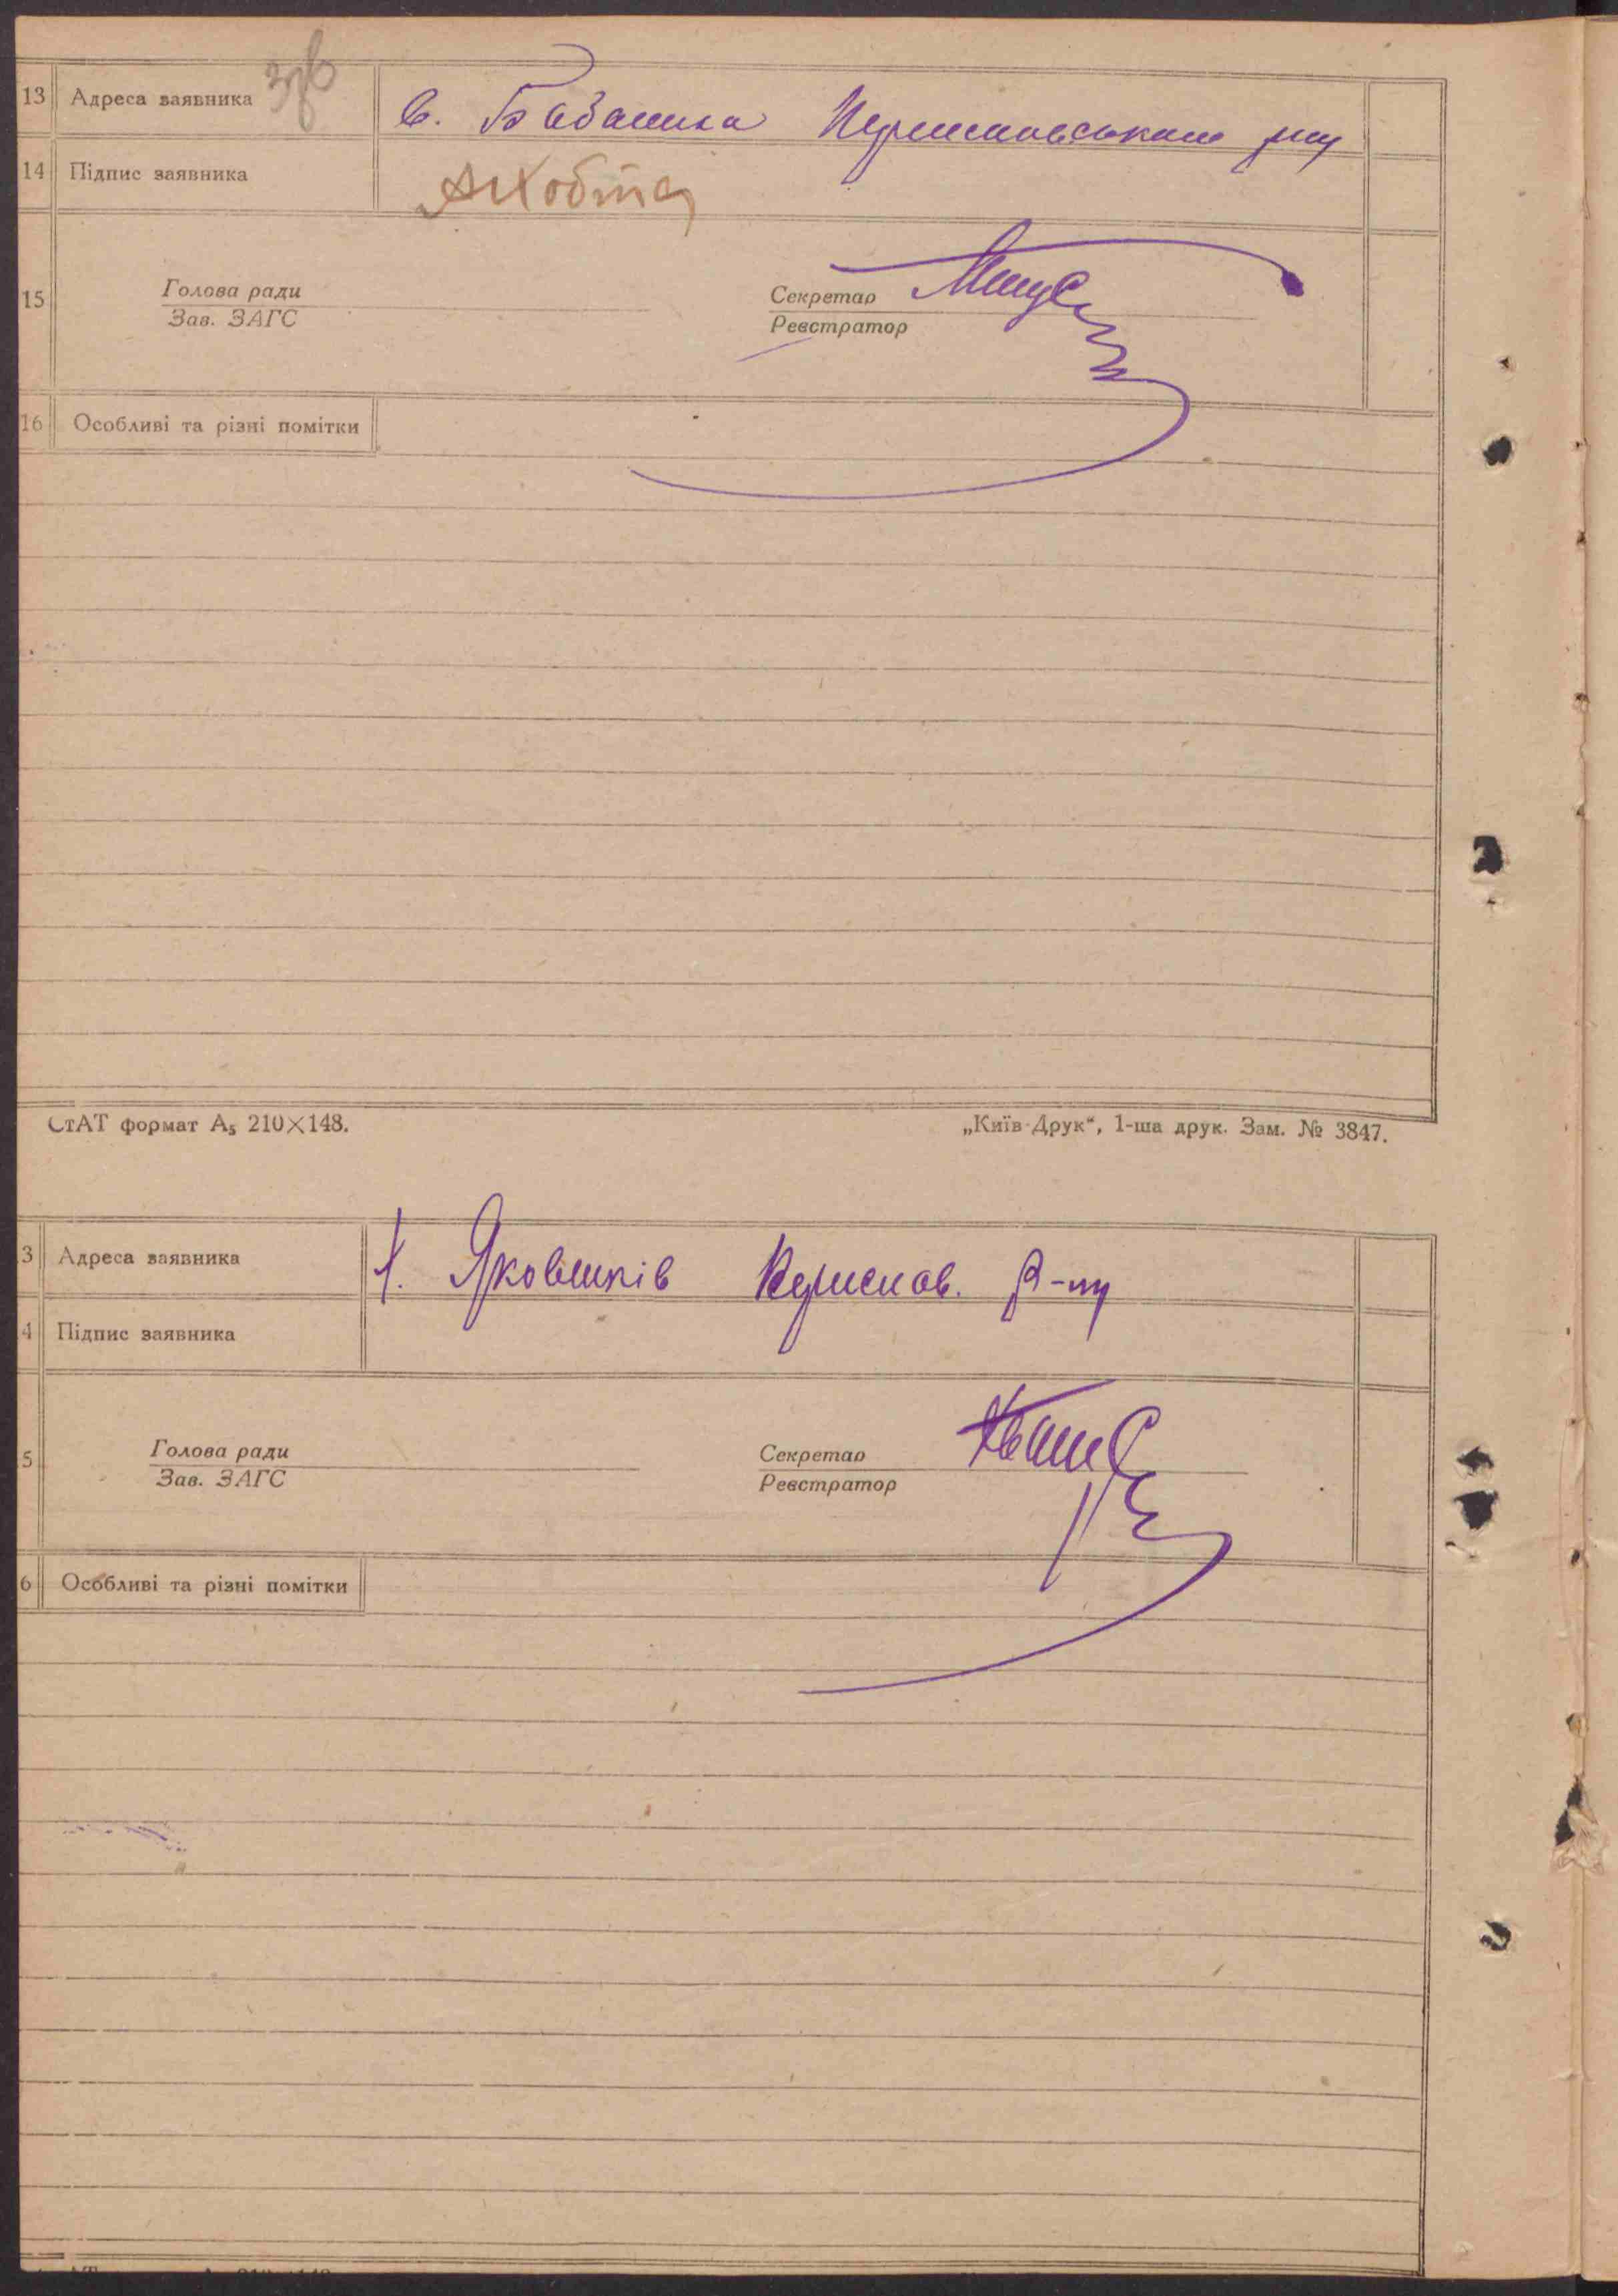 13 Адреса заявника с. Бабашка
14 Підпис заявника
15 Голова ради Секретар
Зав. ЗАГС Реєстратор
16 Особливі та різні помітки
СтАТ формат А₅ 210×148. „Київ-Друк“, 1-ша друк. Зам. № 3847.
3 Адреса заявника х. Яковенків р-ну
4 Підпис заявника
5 Голова ради Секретар
Зав. ЗАГС Реєстратор
6 Особливі та різні помітки